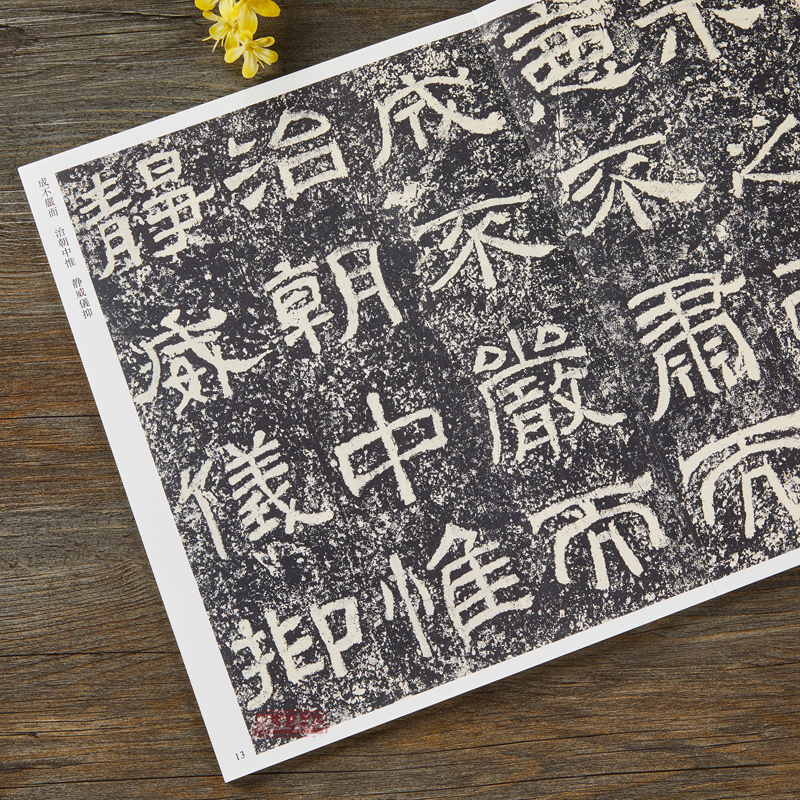 示之
惡不肅而
成不嚴而
治朝中惟
靜威儀抑
成不嚴而　治朝中惟　靜威儀抑
13